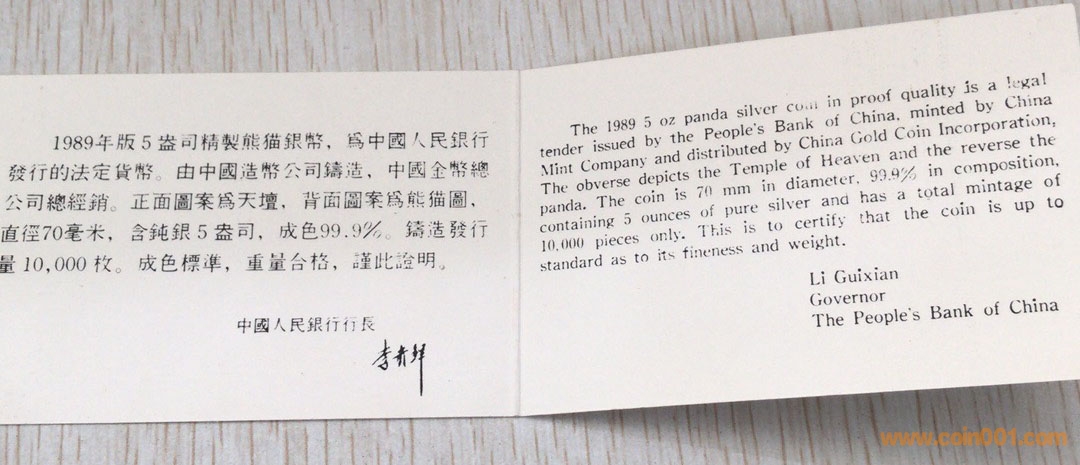 1989年版5盎司精製熊猫銀幣，爲中國人民銀行
發行的法定貨幣。由中國造幣公司鑄造，中國金幣總
公司總經銷。正面圖案爲天壇，背面圖案爲熊猫圖，
直徑70毫米，含純銀5盎司，成色99.9%。鑄造發行
量10,000枚。成色標準，重量合格，謹此證明。
中國人民銀行行長
李貴鮮
The 1989 5 oz panda silver coin in proof quality is a legal
tender issued by the People's Bank of China, minted by China
Mint Company and distributed by China Gold Coin Incorporation,
The obverse depicts the Temple of Heaven and the reverse the
panda. The coin is 70 mm in diameter, 99.9% in composition,
containing 5 ounces of pure silver and has a total mintage of
10,000 pieces only. This is to certify that the coin is up to
standard as to its fineness and weight.
Li Guixian
Governor
The People's Bank of China
www.coin001.com